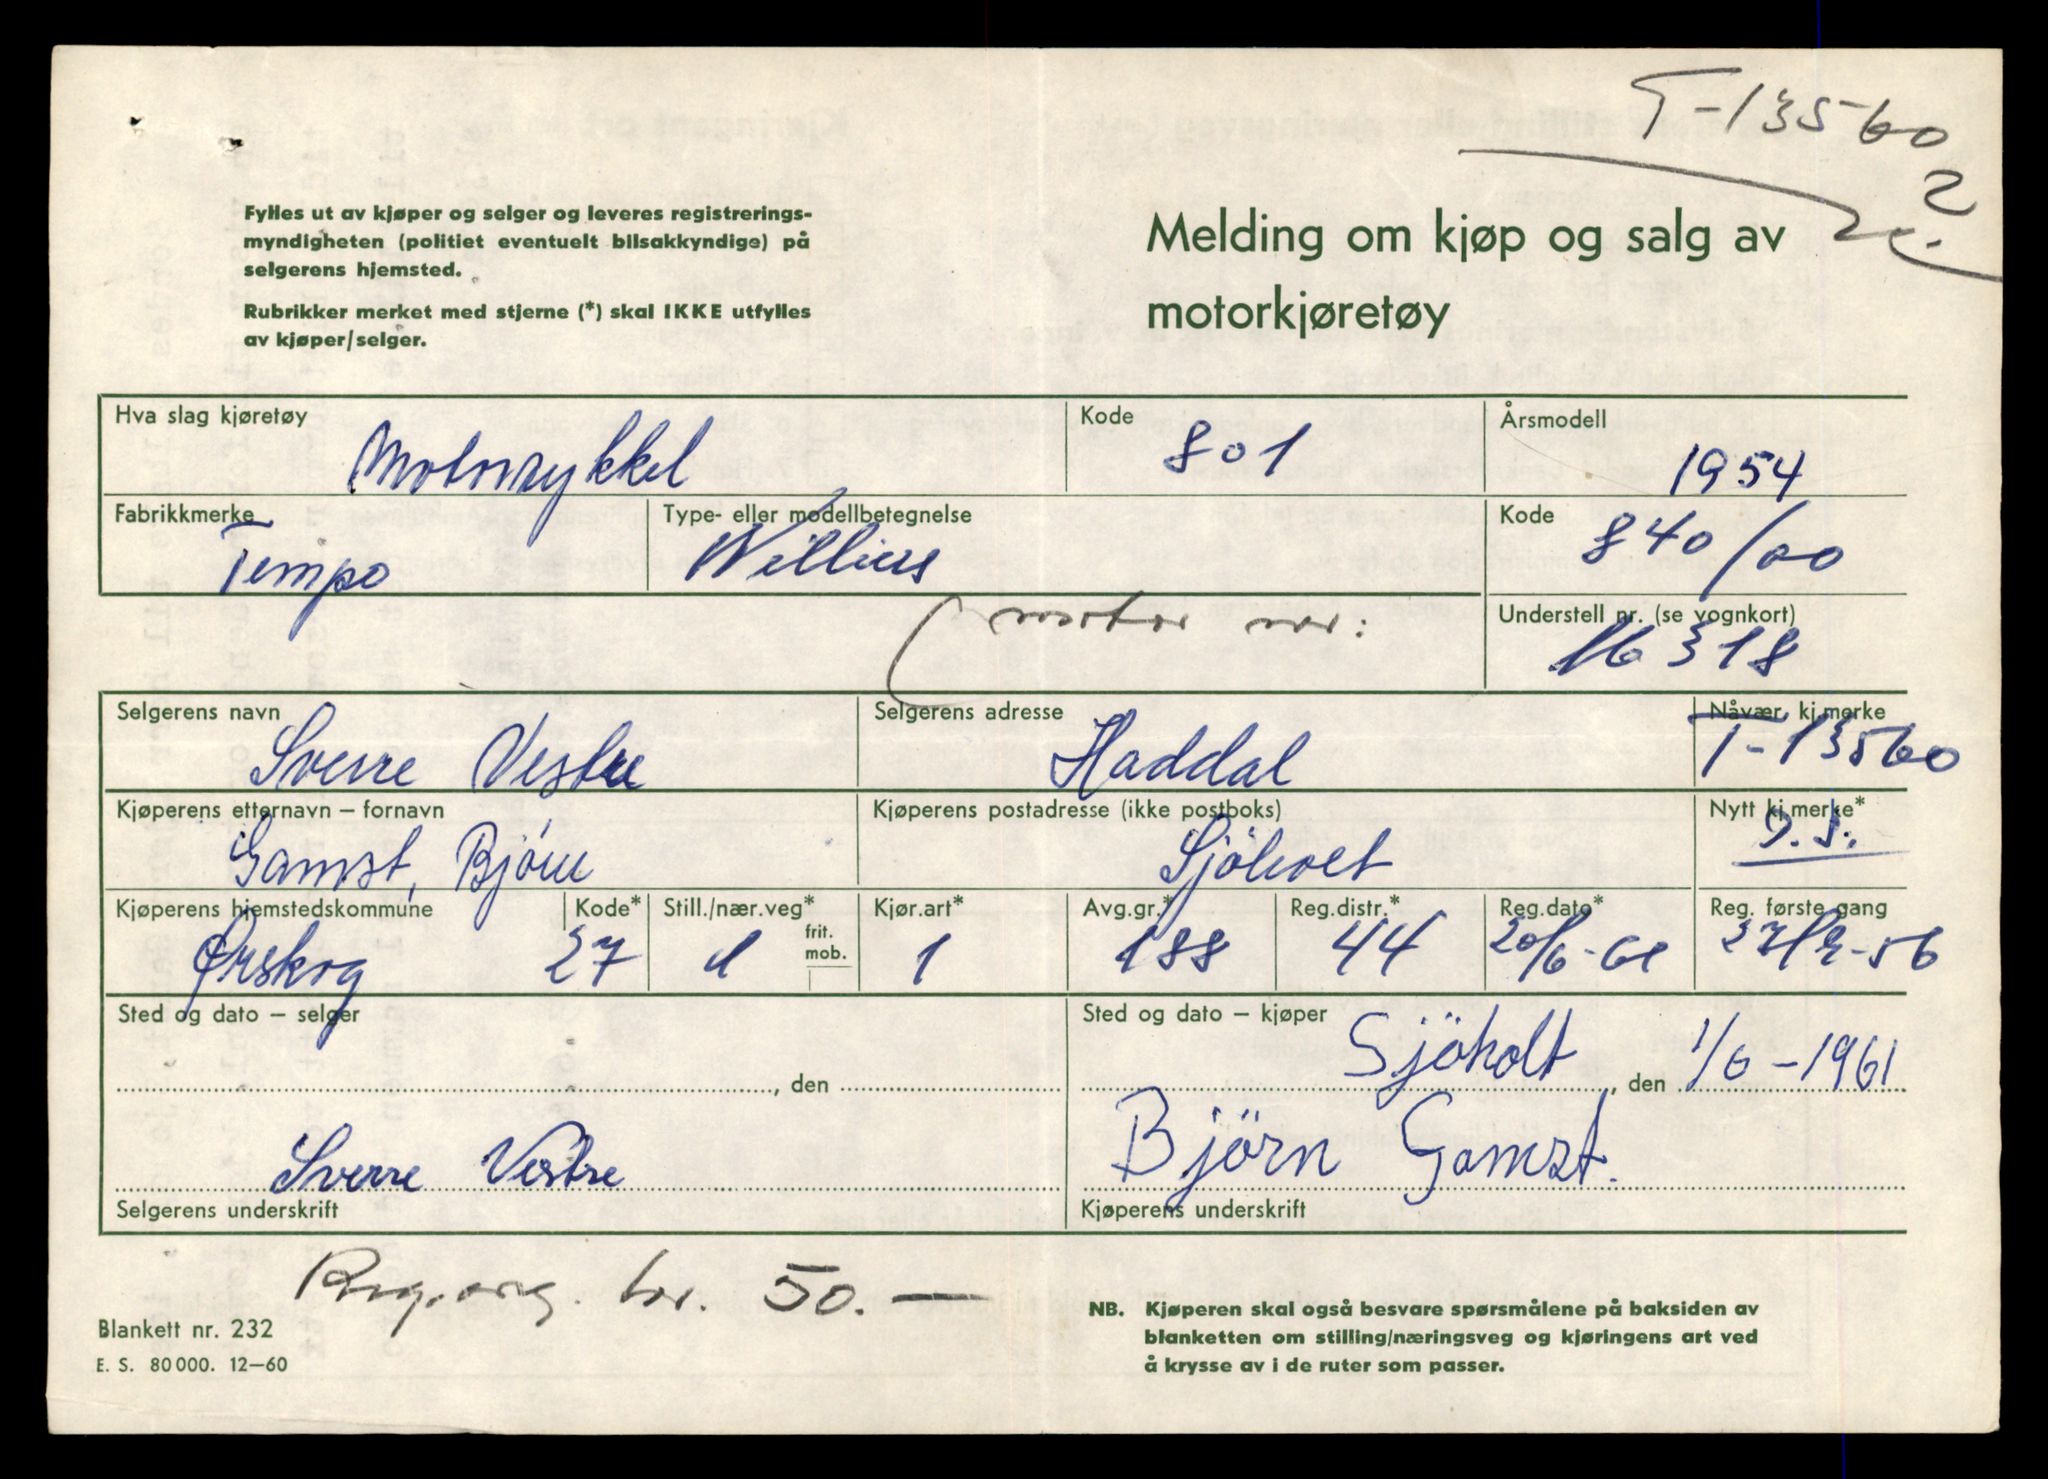 T-13560
2
Fylles ut av kjøper og selger og leveres registrerings-
myndigheten (politiet eventuelt bilsakkyndige) på
selgerens hjemsted.
Rubrikker merket med stjerne (*) skal IKKE utfylles
av kjøper/selger.
Melding om kjøp og salg av
motorkjøretøy
Hva slag kjøretøy Motorsykkel Kode 801 Årsmodell 1954
Fabrikkmerke Tempo Type- eller modellbetegnelse Williers Kode 840/00
(motor nr: Understell nr. (se vognkort) 16318
Selgerens navn Sverre Vestre Selgerens adresse Haddal Nåvær. kj.merke T-13560
Kjøperens etternavn – fornavn Gamst, Bjørn Kjøperens postadresse (ikke postboks) Sjøholt Nytt kj.merke* D.S.
Kjøperens hjemstedskommune Ørskog Kode* 27 Still./nær.veg* 1 frit. mob. Kjør.art* 1 Avg.gr.* 188 Reg.distr.* 44 Reg.dato* 20/6-61 Reg. første gang 27/9-56
Sted og dato – selger , den
Sted og dato – kjøper Sjöholt , den 1/6-1961
Sverre Vestre
Selgerens underskrift
Björn Gamst.
Kjøperens underskrift
Reg.avg. kr. 50.—
Blankett nr. 232
E. S. 80 000. 12–60
NB. Kjøperen skal også besvare spørsmålene på baksiden av
blanketten om stilling/næringsveg og kjøringens art ved
å krysse av i de ruter som passer.